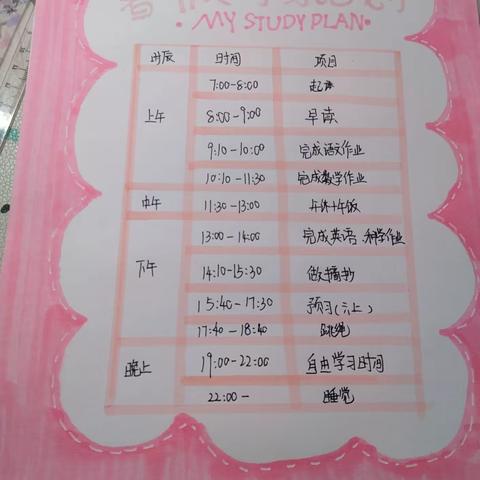 MY STUDY PLAN
时辰 时间 项目
上午 7:00-8:00 起床
8:00-9:00 早读
9:10-10:00 完成语文作业
10:10-11:30 完成数学作业
中午 11:30-13:00 午休+午饭
下午 13:00-14:00 完成英语、科学作业
14:10-15:30 做摘抄
15:40-17:30 预习(六上)
17:40-18:40 跳绳
晚上 19:00-22:00 自由学习时间
22:00- 睡觉